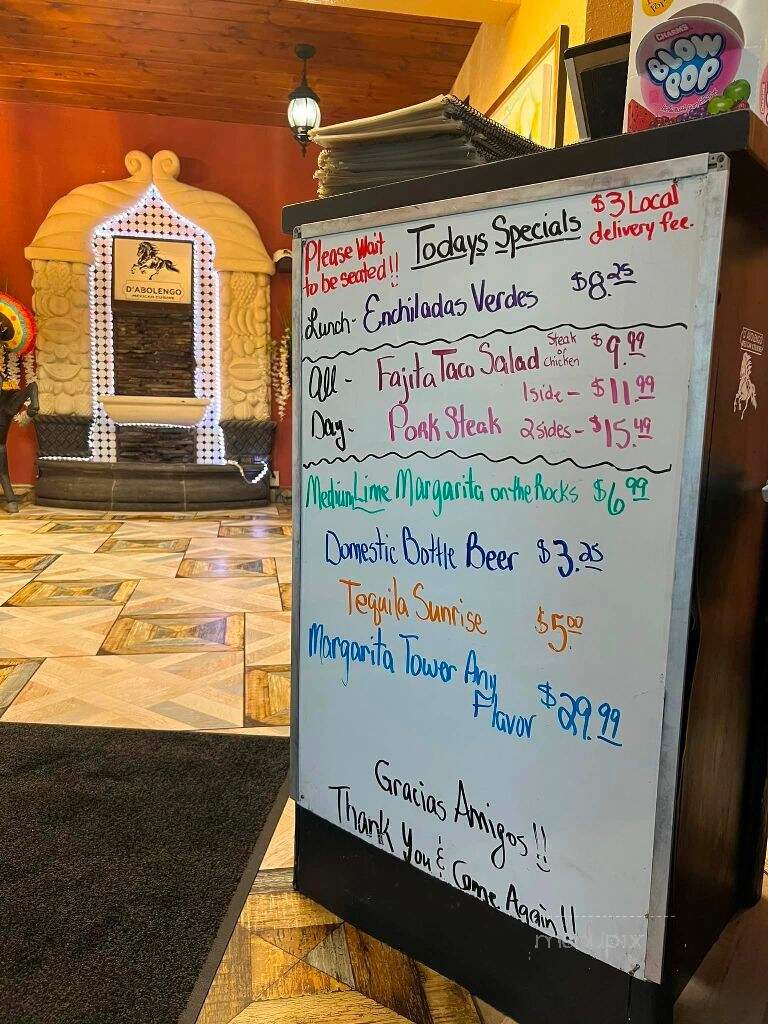 CHARMS
BLOW
POP
D'ABOLENGO
MEXICAN CUISINE
Please Wait
to be seated!!
Todays Specials
$3 Local
delivery fee.
Lunch - Enchiladas Verdes $8.25
All - Fajita Taco Salad Steak or Chicken $9.99
1 side - $11.99
Day - Pork Steak 2 sides - $15.49
Medium Lime Margarita on the Rocks $6.99
Domestic Bottle Beer $3.25
Tequila Sunrise $5.00
Margarita Tower Any
Flavor $29.99
Gracias Amigos!!
Thank You &
Come Again!!
D'ABOLENGO
menupix